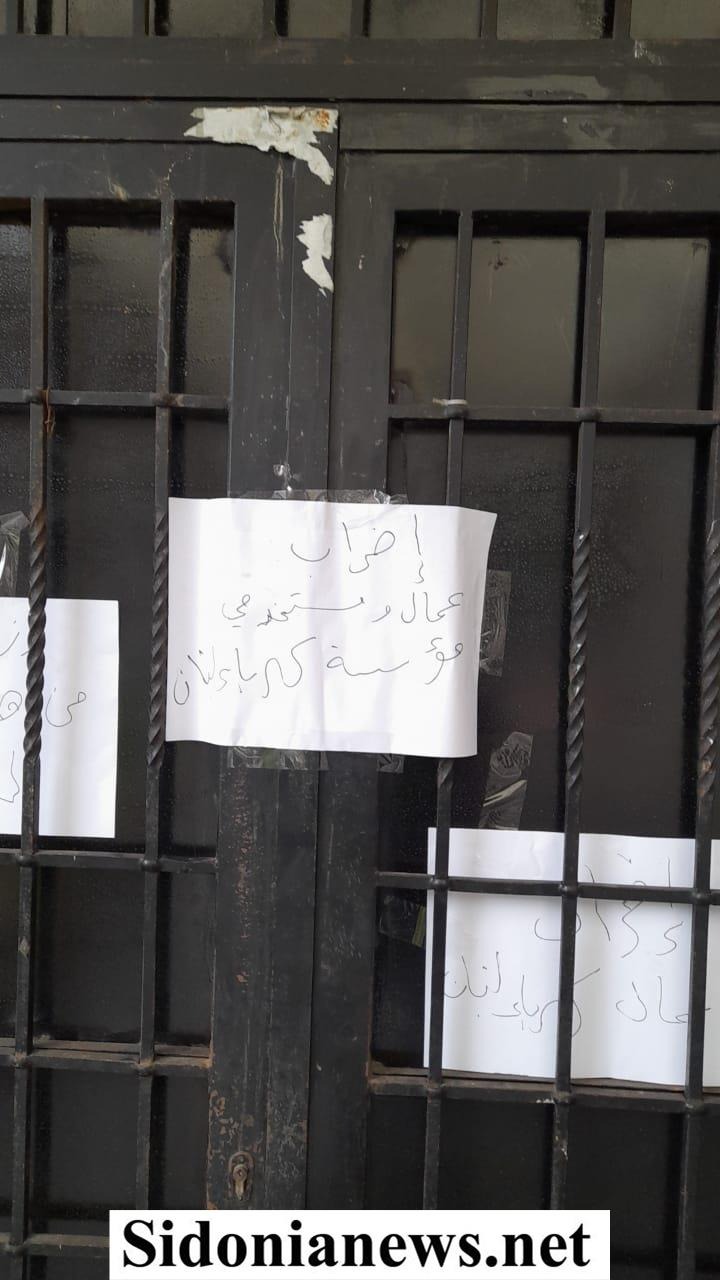 إضراب
عمال و مستخدمي
مؤسسة كهرباء لبنان
إضراب
عمال كهرباء لبنان
من
Sidonianews.net